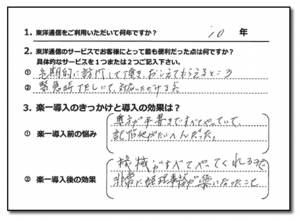 1. 東洋通信をご利用いただいて何年ですか? 10 年
2. 東洋通信のサービスでお客様にとって最も便利だった点は何ですか?
具体的なサービスを1つまたは2つご記入下さい。
① 定期的に訪問して頂き、おしえてもらえるところ
② 緊急時TELして、対応いただける点
3. 楽一導入のきっかけと導入の効果は?
① 楽一導入前の悩み
すべてやっていて、
たいへんだった。
② 楽一導入後の効果
機械がすべてやってくれるので
非常に 楽になったこと